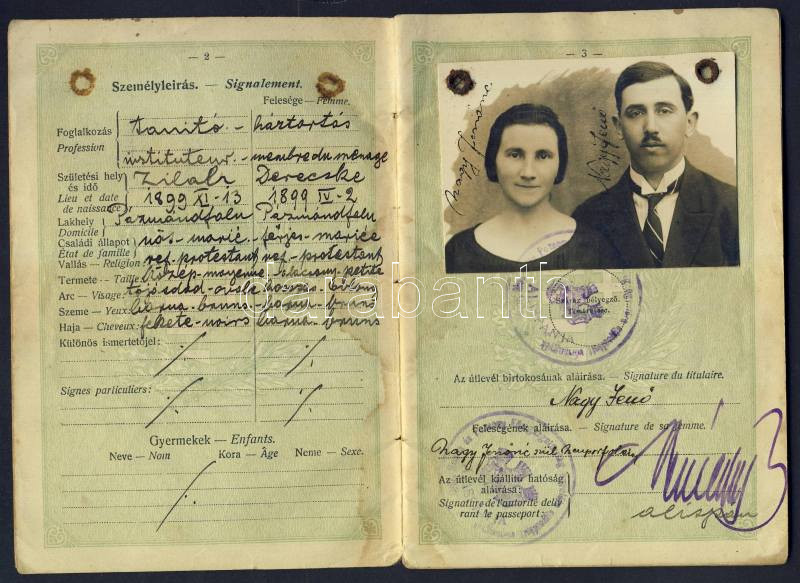 — 2 —
Személyleírás. — Signalement.
Felesége — Femme.
Foglalkozás tanító — háztartás
Profession instituteur — membre du ménage
Születési hely és idő Zilah Derecske
Lieu et date de naissance: 1899 XI-13 1899 IV-2
Lakhely Pázmándfalu Pázmándfalu
Domicile:
Családi állapot nős — marié — férjes — mariée
État de famille:
Vallás — Religion ref. protestant ref. protestant
Termete — Taille: közép — moyenne alacsony — petite
Arc — Visage: tojásdad — ovale hosszas
Szeme — Yeux: barna — bruns barna — bruns
Haja — Cheveux: fekete — noirs barna — bruns
Különös ismertetőjel:
Signes particuliers:
Gyermekek — Enfants.
Neve — Nom Kora — Âge Neme — Sexe.
— 3 —
Nagy Jenőné
Nagy Jenő
Száraz bélyegző.
Timbre sec.
Az útlevél birtokosának aláírása. — Signature du titulaire.
Nagy Jenő
Feleségének aláírása. — Signature de sa femme.
Nagy Jenőné
Az útlevél kiállító hatóság aláírása:
Signature de l'autorité délivrant le passeport:
alispán
darabanth